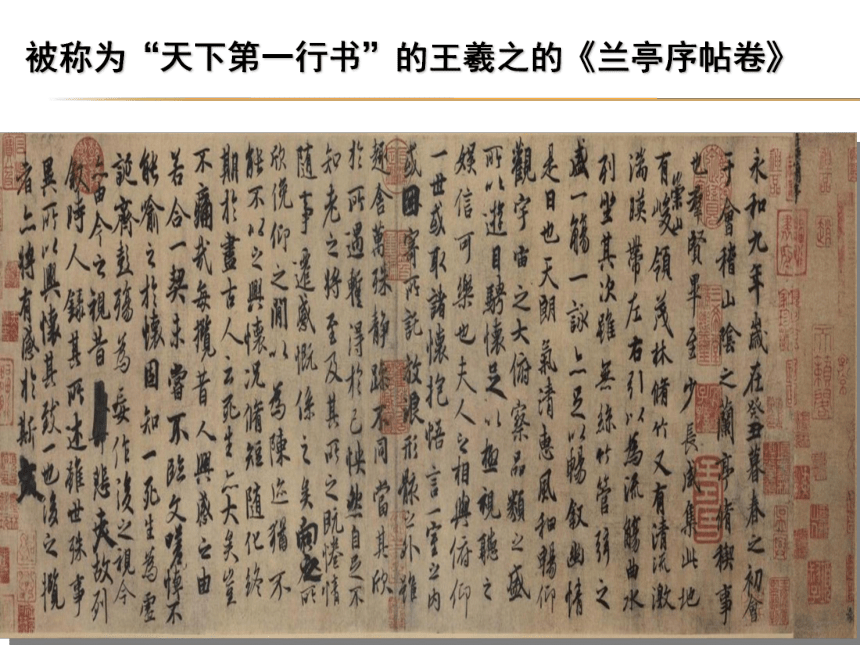 被称为“天下第一行书”的王羲之的《兰亭序帖卷》
永和九年歲在癸丑暮春之初會
于會稽山陰之蘭亭脩稧事
也羣賢畢至少長咸集此地
有崇山峻領茂林脩竹又有清流激
湍暎帶左右引以為流觴曲水
列坐其次雖無絲竹管弦之
盛一觴一詠亦足以暢敘幽情
是日也天朗氣清惠風和暢仰
觀宇宙之大俯察品類之盛
所以遊目騁懷足以極視聽之
娛信可樂也夫人之相與俯仰
一世或取諸懷抱悟言一室之內
或因寄所託放浪形骸之外雖
趣舍萬殊靜躁不同當其欣
於所遇暫得於己怏然自足不
知老之將至及其所之既惓情
隨事遷感慨係之矣向之所
欣俛仰之閒以為陳迹猶不
能不以之興懷況脩短隨化終
期於盡古人云死生亦大矣豈
不痛哉每攬昔人興感之由
若合一契未嘗不臨文嗟悼不
能喻之於懷固知一死生為虛
誕齊彭殤為妄作後之視今
亦由今之視昔悲夫故列
敘時人錄其所述雖世殊事
異所以興懷其致一也後之攬
者亦將有感於斯文